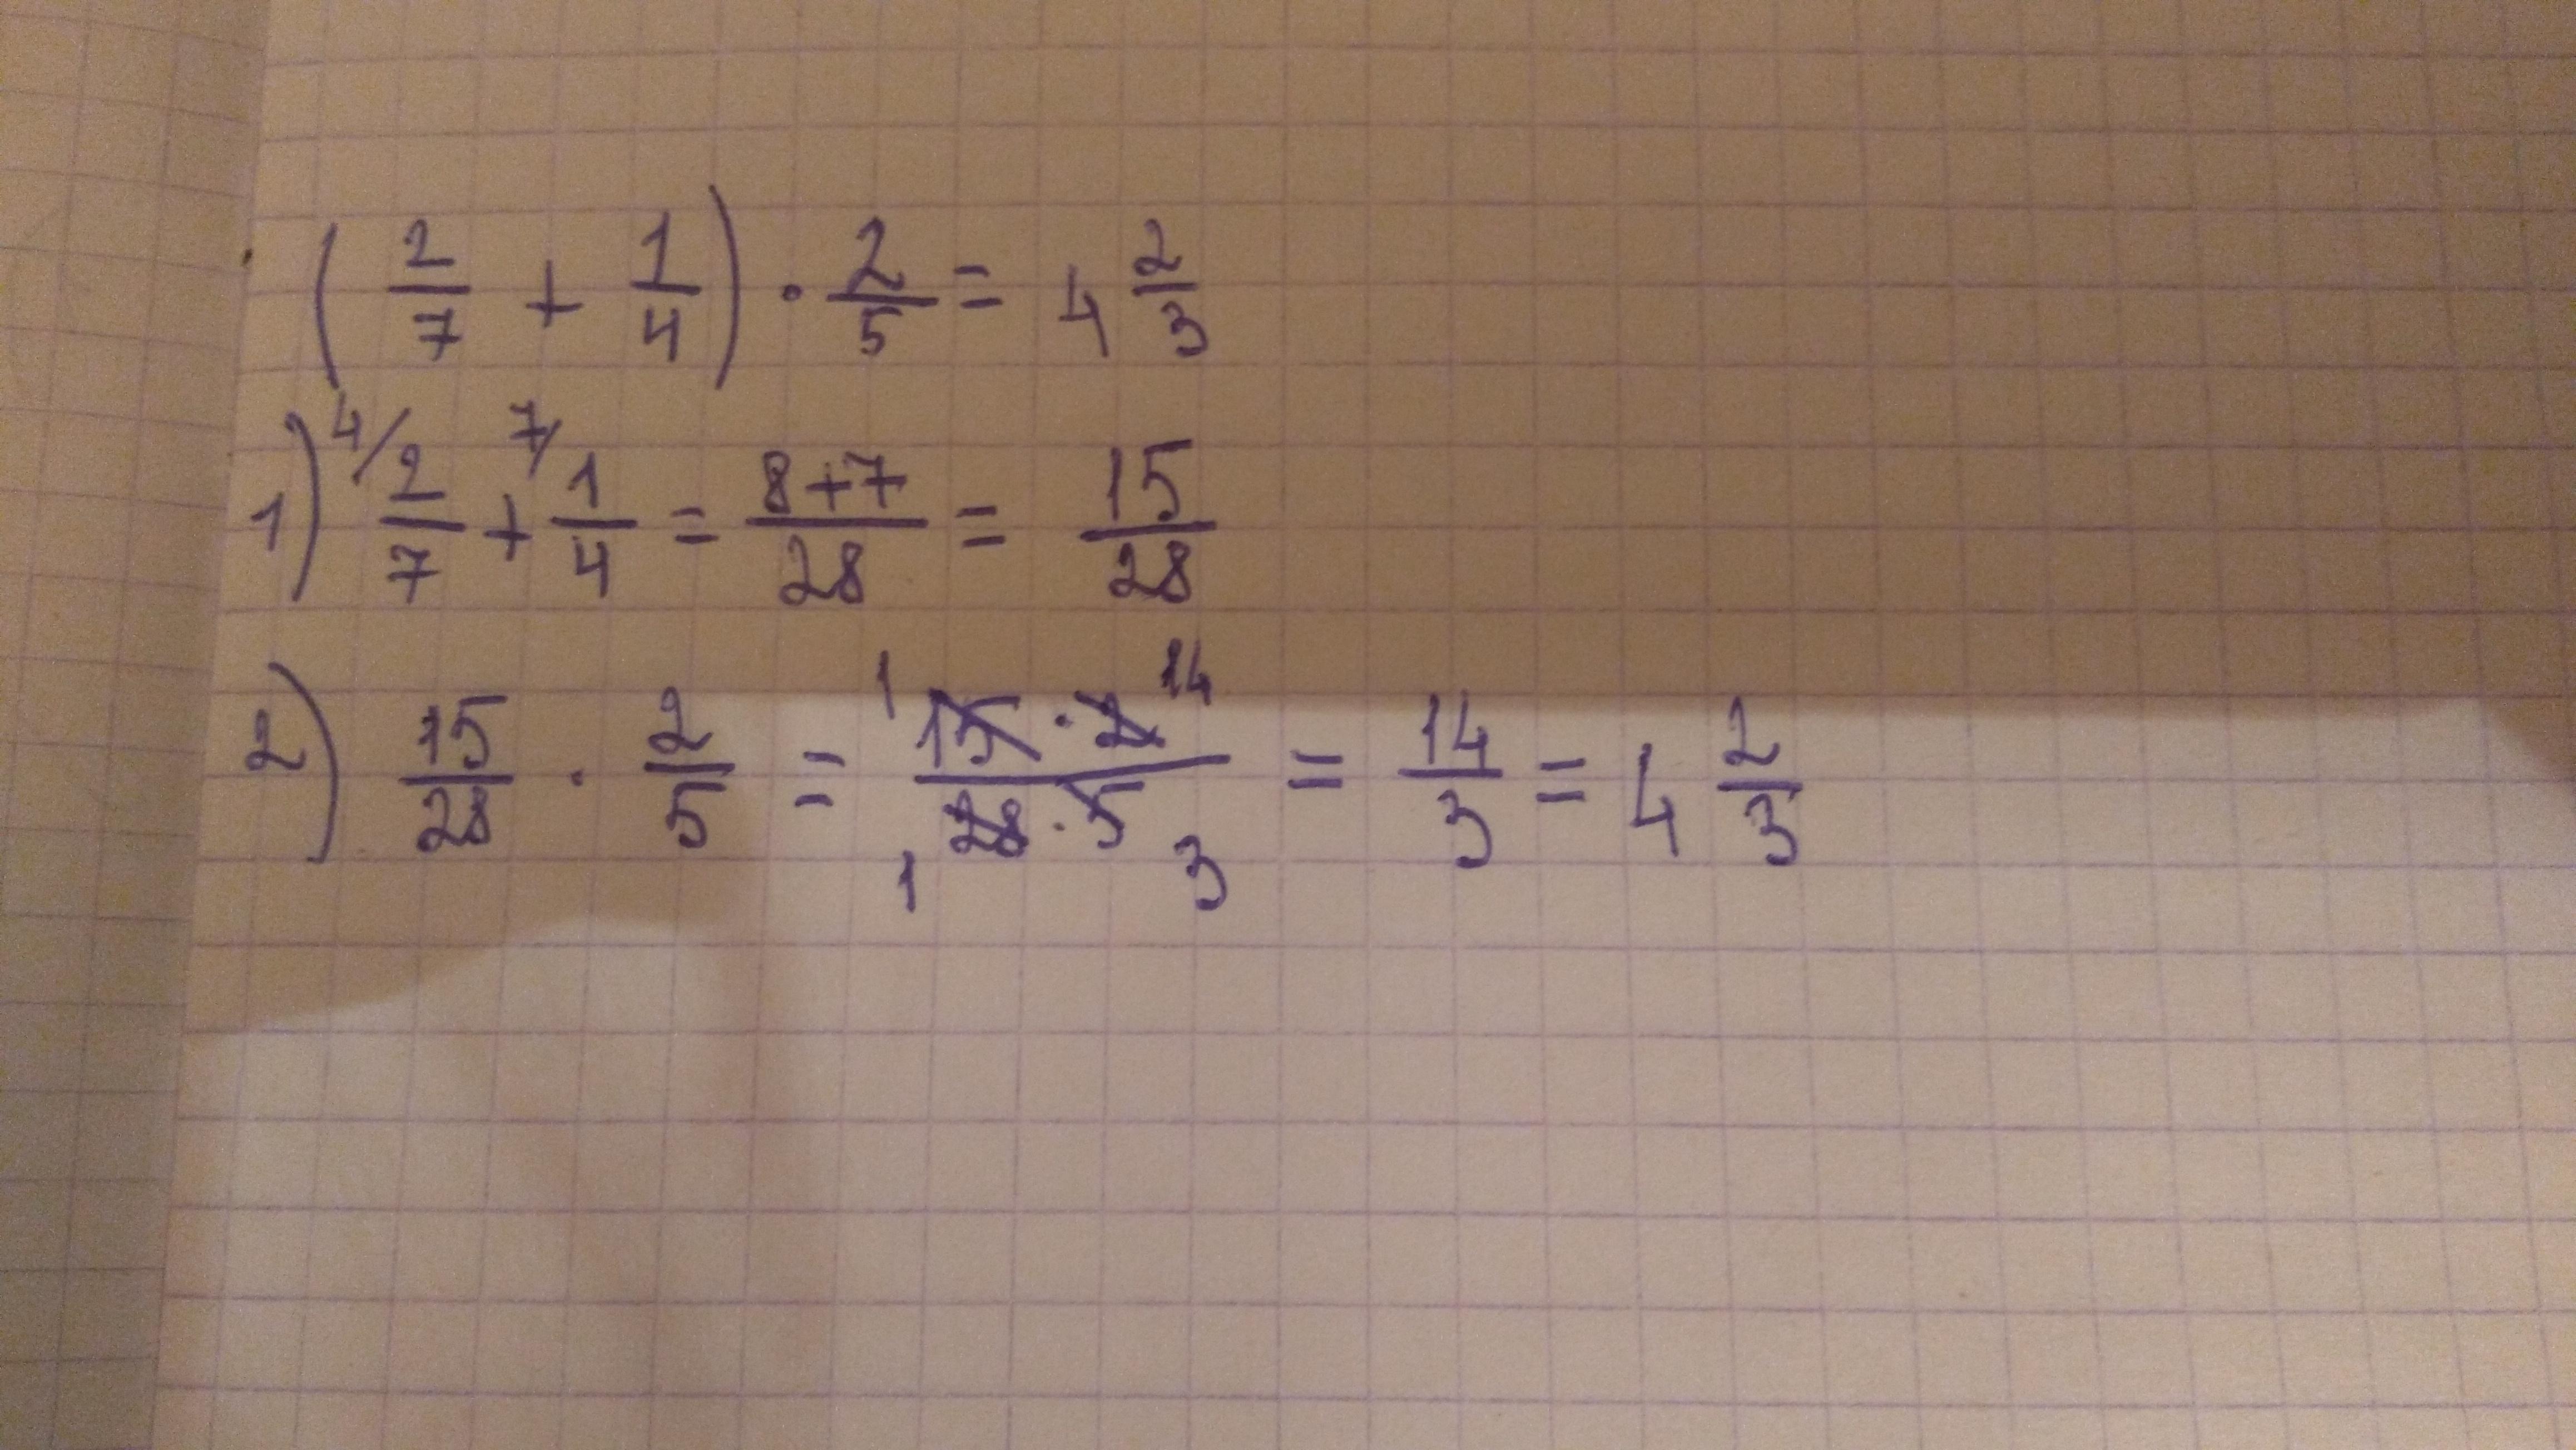 (2/7 + 1/4) · 2/5 = 4 2/3
1) ⁴⁄ 2/7 + ⁷⁄ 1/4 = (8+7)/28 = 15/28
2) 15/28 · 2/5 = ¹ (15 · 2)/(28 · 5) ¹⁴ ₁ ₃ = 14/3 = 4 2/3